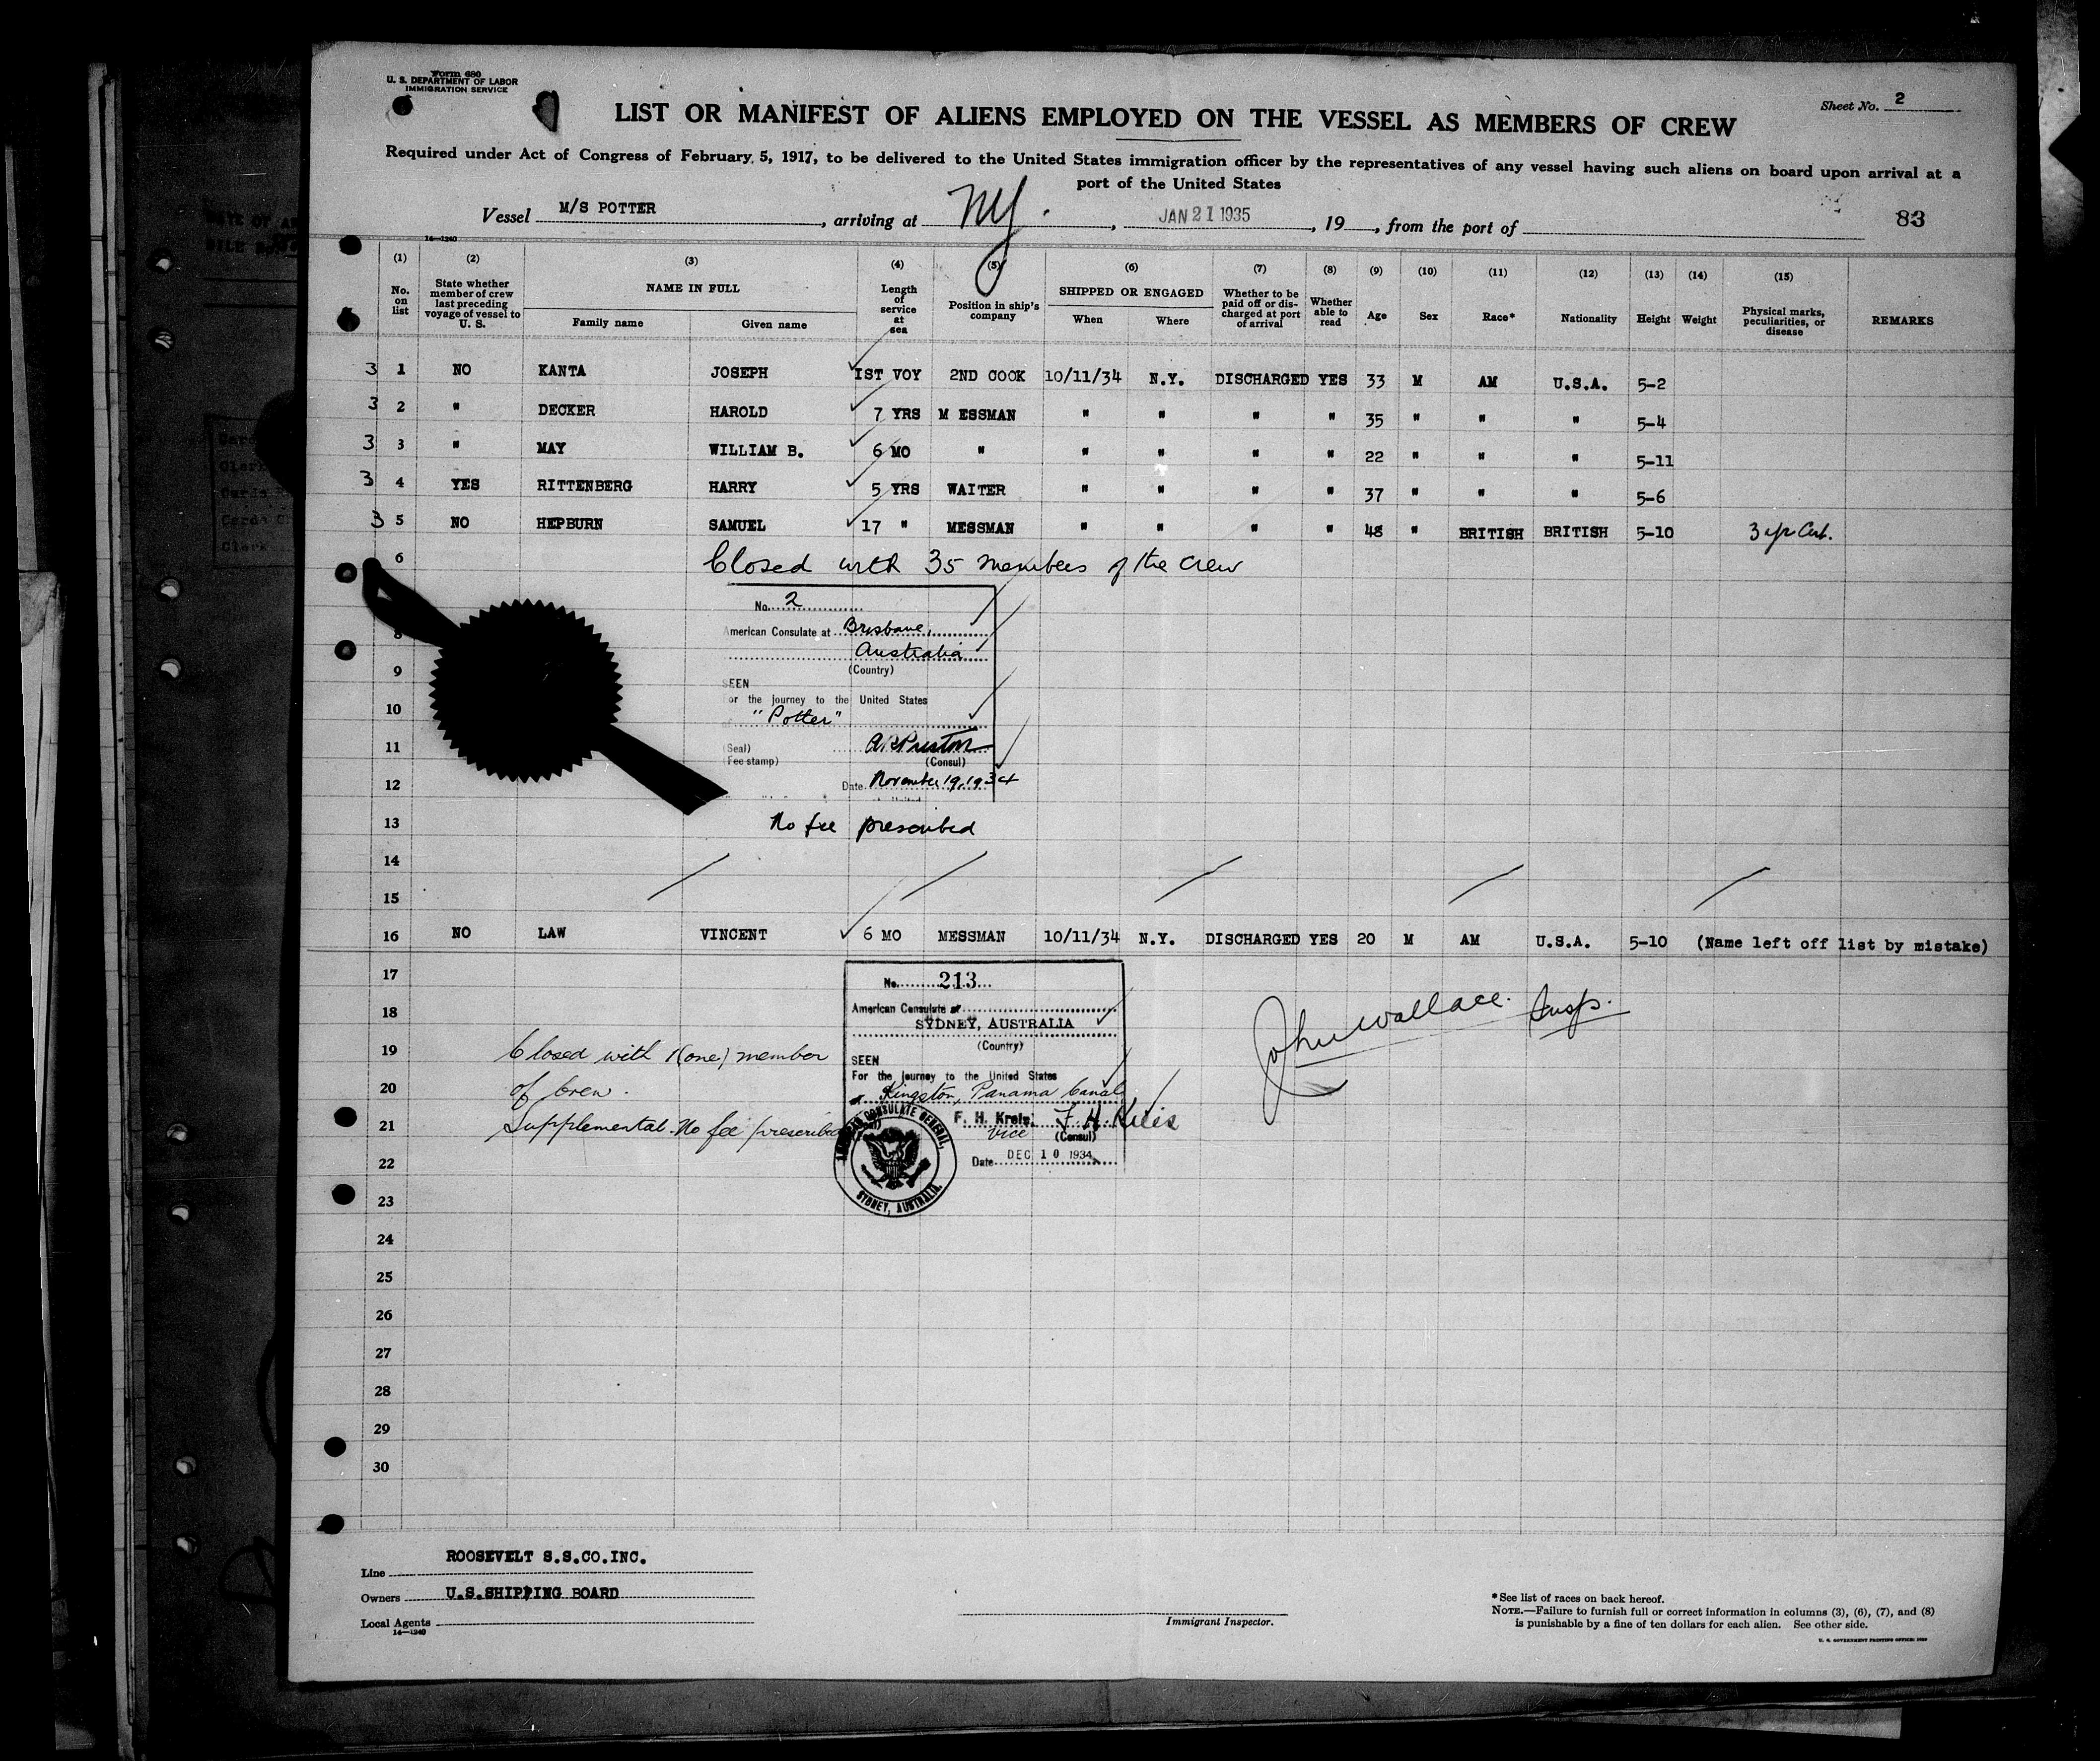 Form 680
U. S. DEPARTMENT OF LABOR
IMMIGRATION SERVICE
Sheet No. 2
LIST OR MANIFEST OF ALIENS EMPLOYED ON THE VESSEL AS MEMBERS OF CREW
Required under Act of Congress of February 5, 1917, to be delivered to the United States immigration officer by the representatives of any vessel having such aliens on board upon arrival at a
port of the United States
Vessel M/S POTTER, arriving at NY., JAN 21 1935, 19, from the port of
83
14—1240
(1) (2) (3) (4) (5) (6) (7) (8) (9) (10) (11) (12) (13) (14) (15)
No. on list
State whether member of crew last preceding voyage of vessel to U. S.
NAME IN FULL
Family name Given name
Length of service at sea
Position in ship's company
SHIPPED OR ENGAGED
When Where
Whether to be paid off or discharged at port of arrival
Whether able to read
Age Sex Race* Nationality Height Weight
Physical marks, peculiarities, or disease
REMARKS
3 1 NO KANTA JOSEPH 1ST VOY 2ND COOK 10/11/34 N.Y. DISCHARGED YES 33 M AM U.S.A. 5-2
3 2 " DECKER HAROLD 7 YRS M ESSMAN " " " " 35 " " " 5-4
3 3 " MAY WILLIAM B. 6 MO " " " " " 22 " " " 5-11
3 4 YES RITTENBERG HARRY 5 YRS WAITER " " " " 37 " " " 5-6
3 5 NO HEPBURN SAMUEL 17 " MESSMAN " " " " 48 " BRITISH BRITISH 5-10
6 Closed with 35 members of the crew
No. 2
8 American Consulate at Brisbane,
Australia
9 (Country)
SEEN
10 For the journey to the United States
"Potter"
11 (Seal) (Consul)
(Fee stamp)
12 Date November 19, 1934
13 No fee prescribed
14
15
16 NO LAW VINCENT 6 MO MESSMAN 10/11/34 N.Y. DISCHARGED YES 20 M AM U.S.A. 5-10 (Name left off list by mistake)
17 No. 213
18 American Consulate at
SYDNEY, AUSTRALIA
(Country)
John Wallace. Insp.
19 Closed with 1(one) member
SEEN
For the journey to the United States
20 of crew.
Kingston, Panama Canal
21 Supplemental. No fee prescribed
F. H. Kreis. F. H. Kreis
Vice (Consul)
22 Date DEC 10 1934
AMERICAN CONSULATE GENERAL,
SYDNEY, AUSTRALIA.
23
24
25
26
27
28
29
30
Line ROOSEVELT S.S.CO.INC.
Owners U.S.SHIPPING BOARD
Local Agents
14—1240
Immigrant Inspector.
*See list of races on back hereof.
NOTE.—Failure to furnish full or correct information in columns (3), (6), (7), and (8)
is punishable by a fine of ten dollars for each alien. See other side.